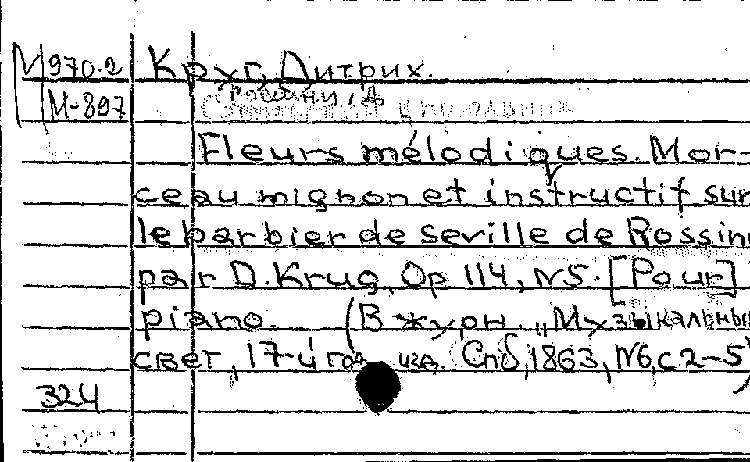 970.2 Круг, Дитрих.
М-897 Россини, Д
Fleurs mélodiques. Mor-
ceau mignon et instructif sur
le barbier de Seville de Rossin
par D. Krug, Op 114, N5. [Pour]
piano. (В журн. „Музыкальны
свет, 17-й год изд. Спб, 1863, N6, с 2-5)
324